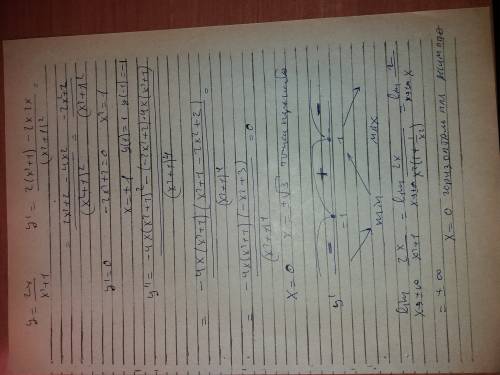 y = 2x / x²+1   y' = 2(x²+1) - 2x·2x / (x²+1)² =
= 2x²+2-4x² / (x²+1)² = -2x²+2 / (x²+1)²
y'=0   -2x²+2=0   x²=1
x=±1   y(1)=1   y(-1)=-1
y'' = -4x(x²+1)² - (-2x²+2)·4x(x²+1) / (x²+1)⁴
= -4x(x²+1)(x²+1-2x²+2) / (x²+1)⁴ =
= -4x(x²+1)(-x²+3) / (x²+1)⁴ = 0
x=0   x=±√3   точки
y'   -   -1   +   1   -
min   max
lim x→±∞ 2x / x²+1 = lim x→±∞ 2x / x²(1+1/x²) = lim x→±∞ 2 / x
= ±∞   x=0 горизонтальная